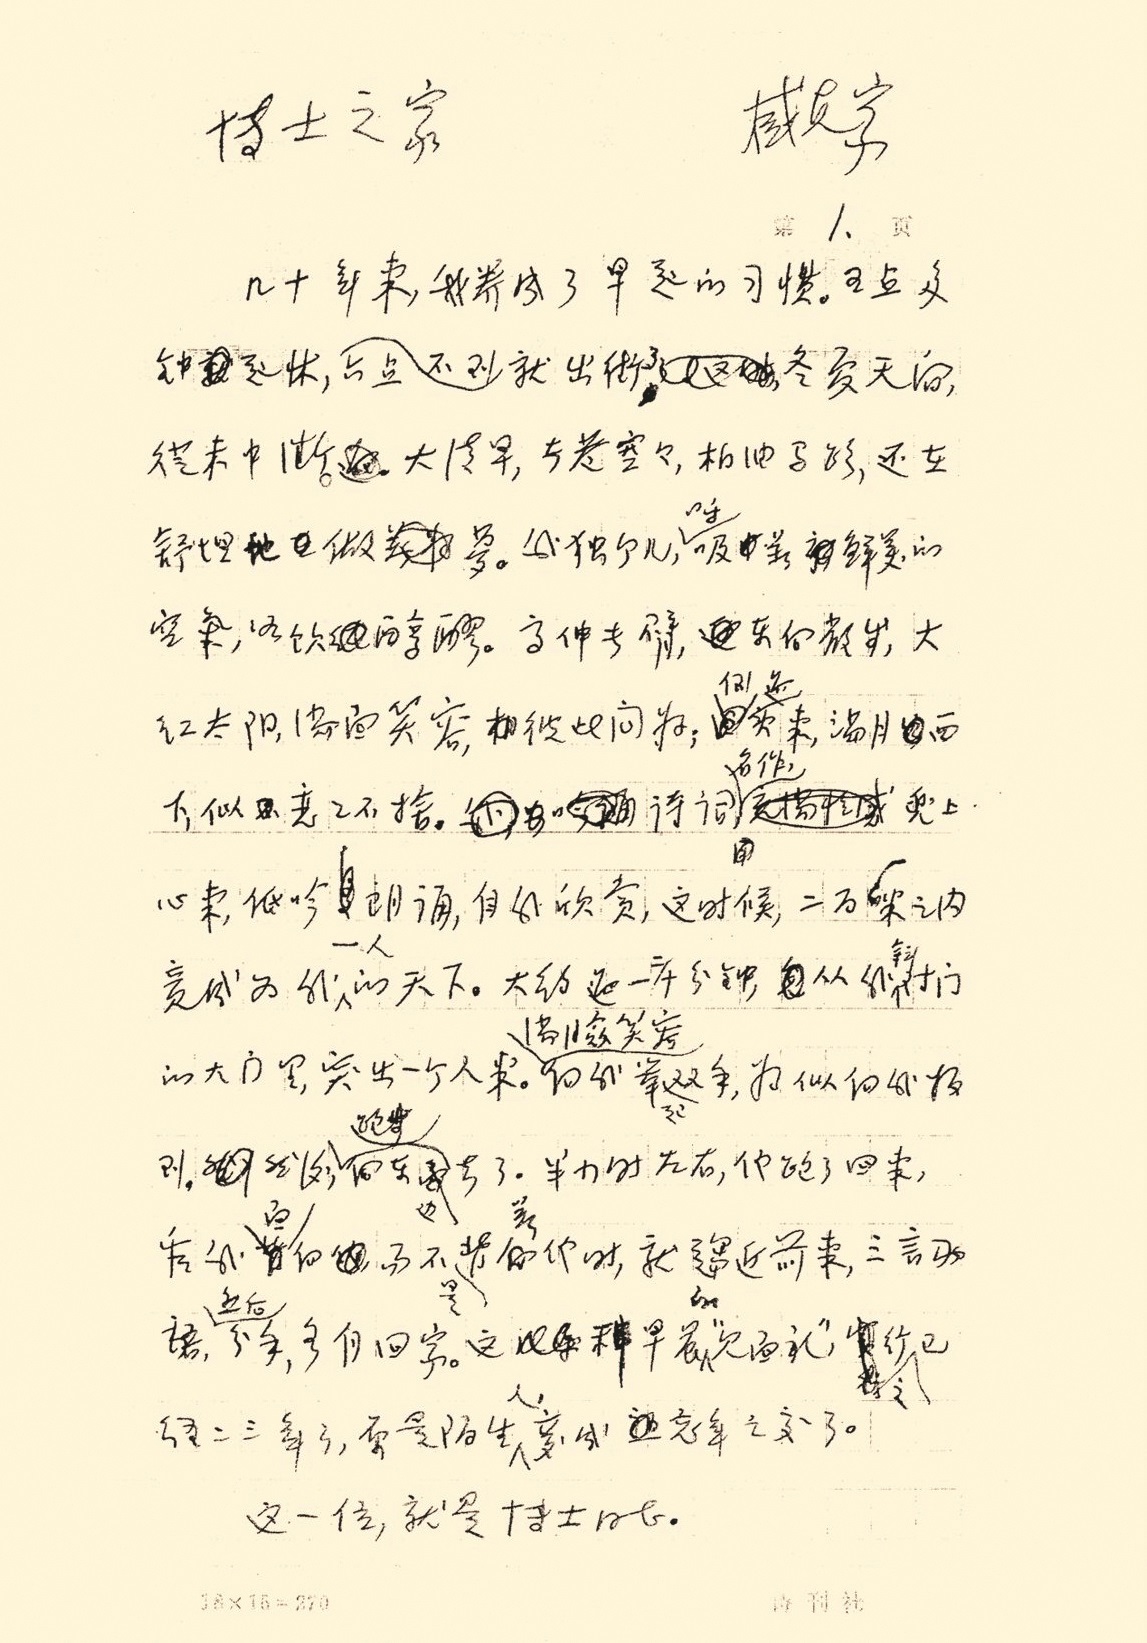 博士之家 臧克家
第 1 页
几十年来,我养成了早起的习惯。五点多
钟起床,六点不到就出街了,冬夏天间,
从未中断。大清早,长巷空空,柏油马路,还在
舒坦地做梦。我独个儿,呼吸着新鲜美的
空气,如饮醇醪。高伸长臂,向东向散步,大
红太阳,满面笑容,彼此问好;倒过来,满月西
下,似恋恋不舍。诗词名作,兜上
心来,低吟朗诵,自我欣赏,这时候,二百米之内
竟成为我一人的天下。大约过一半分钟,从我斜对门
的大门里,突出一个人来。满脸笑容向我举起双手,好似向我报
到。然后,跑步向东去了。半小时左右,他跑了回来,
当我面向而不是背着他时,就趋近前来,三言两
语,然后分手,各自回家。这种早晨的"见面礼",举行已
经二三年了,原是陌生人,变成忘年之交了。
这一位,就是博士的长。
18×15=270 诗刊社